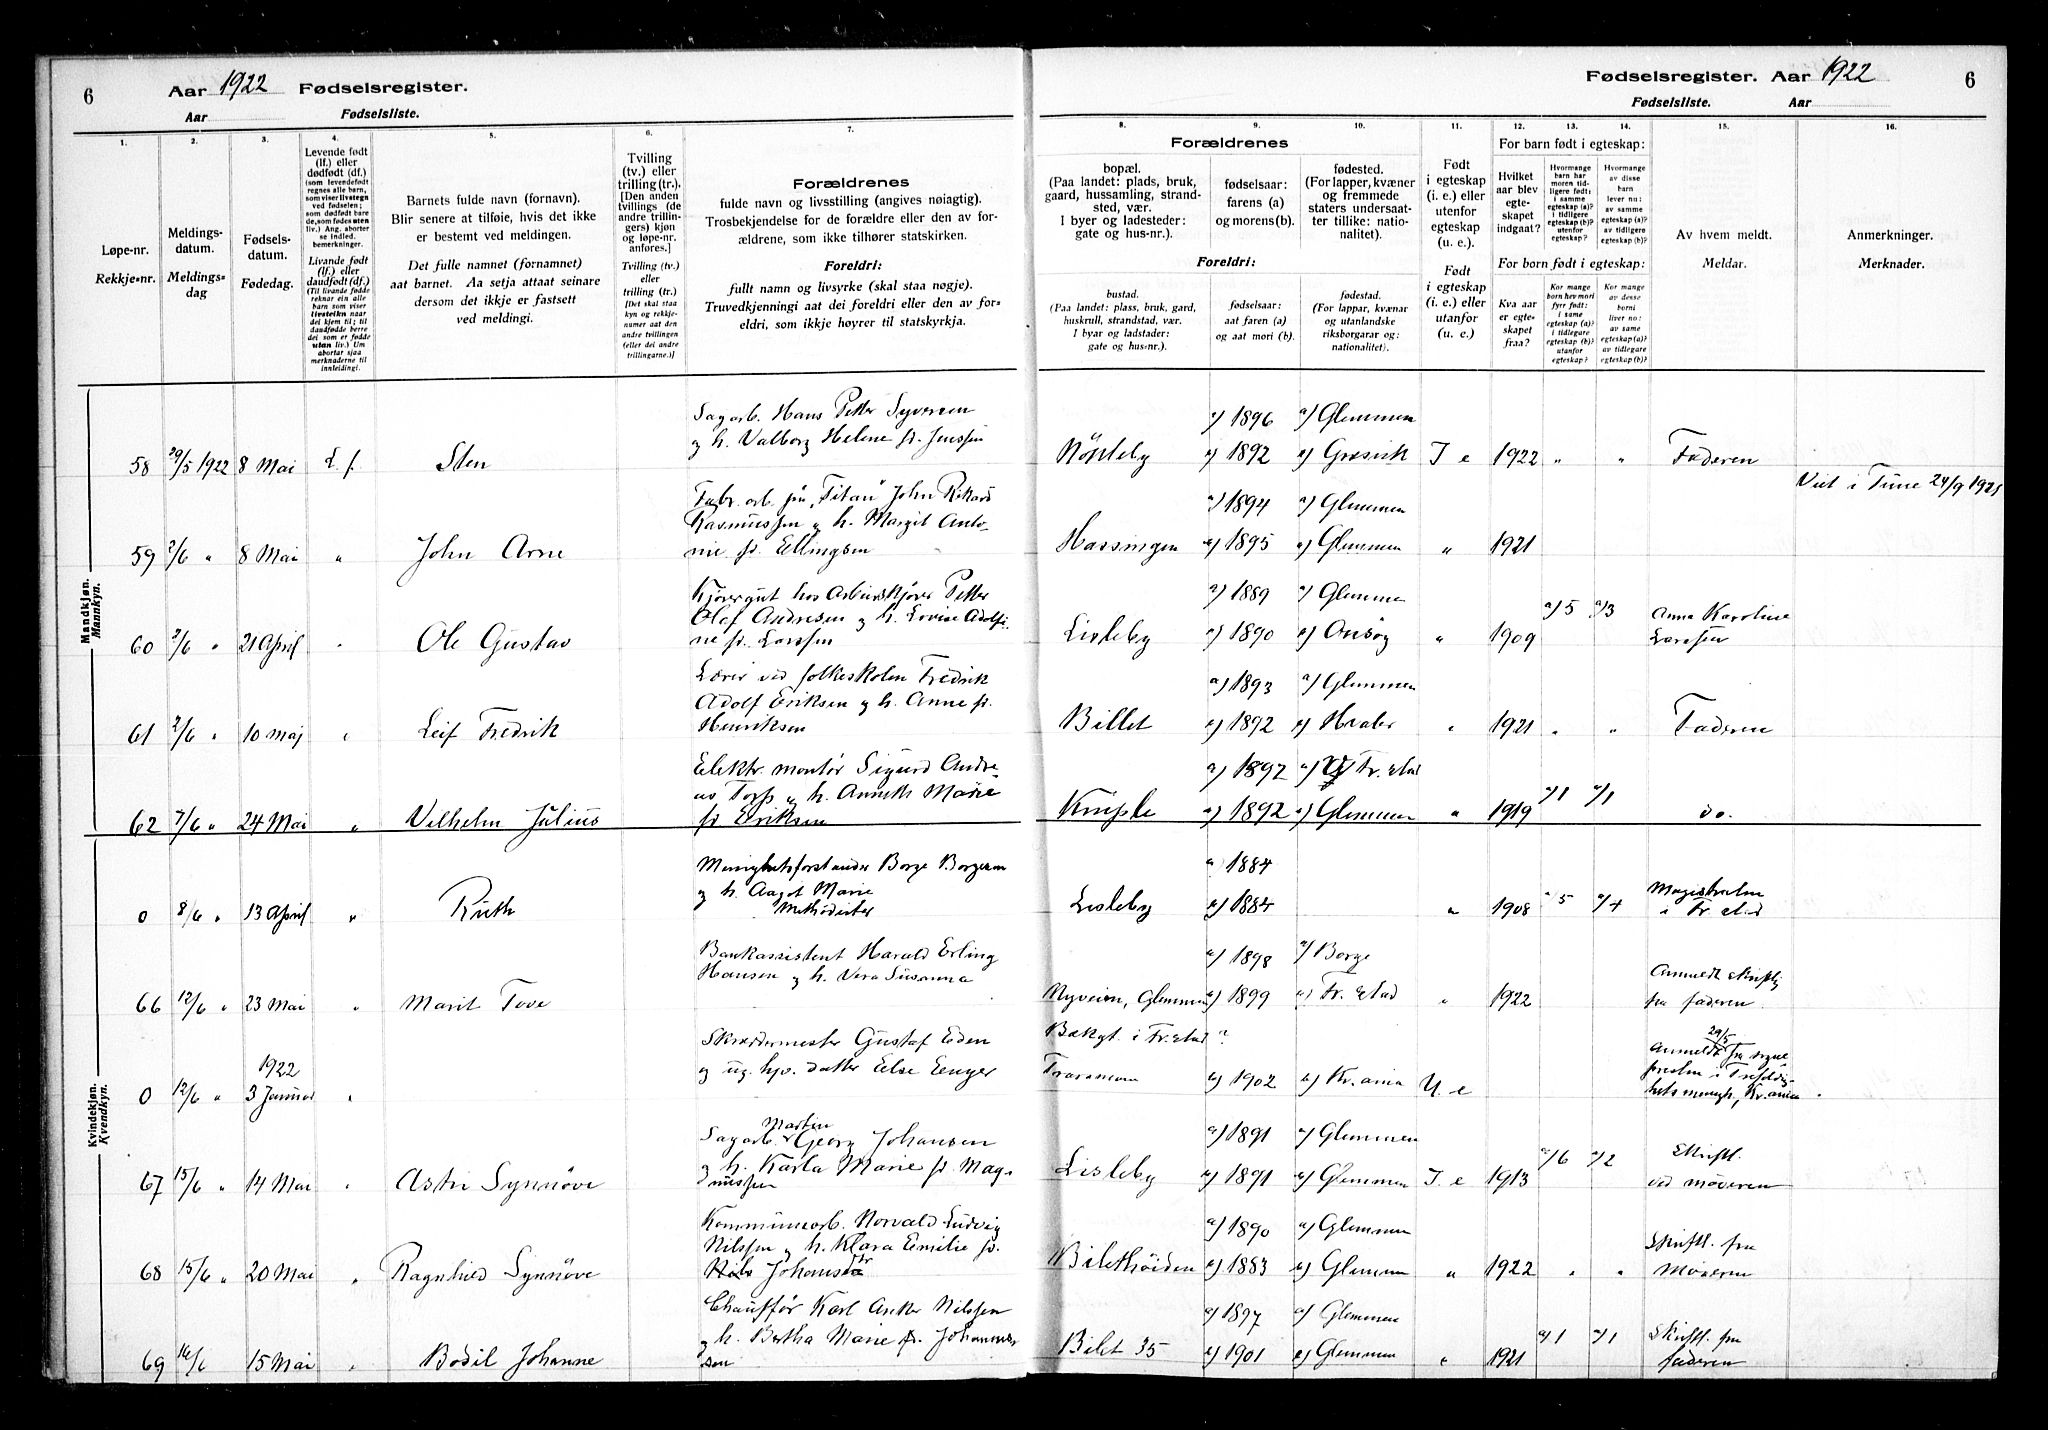 6
Aar 1922 Fødselsregister.
Aar Fødselsliste.
1.
Løpe-nr.
Rekkje-nr.
2.
Meldings-
datum.
Meldings-
dag
3.
Fødsels-
datum.
Fødedag.
4.
Levende født
(lf.) eller
dødfødt (df.)
(som levendefødt
regnes alle barn,
som viser livstegn
ved fødselen;
som dødfødt bare
de, som fødes uten
liv.) Ang. aborter
se indled.
bemerkninger.
Livande født
(lf.) eller
daudfødt (df.)
(Til livande fødde
reknar ein alle
barn som viser
livsteikn naar
dei kjem til; til
daudfødde berre
dei som er fødde
utan liv.) Um
abortar sjaa
merknaderne til
innleidingi.
5.
Barnets fulde navn (fornavn).
Blir senere at tilføie, hvis det ikke
er bestemt ved meldingen.
Det fulle namnet (fornamnet)
aat barnet. Aa setja attaat seinare
dersom det ikkje er fastsett
ved meldingi.
6.
Tvilling
(tv.) eller
trilling (tr.).
[Den anden
tvillings (de
andre trillin-
gers) kjøn
og løpe-nr.
anføres.]
Tvilling (tv.)
eller
trilling (tr.)
[Det skal staa
kyn og rekkje-
numer aat den
andre tvillingen
(eller dei andre
trillingarne.)]
7.
Forældrenes
fulde navn og livsstilling (angives nøiagtig).
Trosbekjendelse for de forældre eller den av for-
ældrene, som ikke tilhører statskirken.
Foreldri:
fullt namn og livsyrke (skal staa nøgje).
Truvedkjenningi aat dei foreldri eller den av for-
eldri, som ikkje høyrer til statskyrkja.
Mandkjøn.
Mannkyn.
58 29/5 1922 8 Mai L. f. Sten
Sagarb. Hans Petter Syversen
og h. Valborg Helene f. Jenssen
59 2/6 " 8 Mai " John Arne
Fabr. arb. på "Titan" John Rikard
Rasmussen og h. Margit Anto-
nie f. Ellingsen
60 2/6 " 21 April " Ole Gustav
Kjøregut hos Petter
Olaf Andresen og h. Lovise Adolfi-
ne f. Larssen
61 2/6 " 10 Maj " Leif Fredrik
Lærer ved folkeskolen Fredrik
Adolf Eriksen og h. Anne f.
Henriksen
62 7/6 " 24 Mai " Vilhelm Julius
Elektr. montør Sigurd Andre-
as Torp og h. Annette Marie
f. Eriksen
Kvindekjøn.
Kvendkyn.
0 8/6 " 13 April " Ruth
Menighetsforstander Borge Borgersen
og h. Aagot Marie
Methodister
66 12/6 " 23 Mai " Marit Tove
Bankassistent Harald Erling
Hansen og h. Vera Susanna
1922
0 12/6 " 3 Januar "
Skræddermester Gustaf Eden
og ug. hjv. datter Else Enger
67 15/6 " 14 Mai " Astri Synnöve
Martin
Sagarb. Georg Johansen
og h. Karla Marie f. Mag-
nussen
68 15/6 " 20 Mai " Ragnhild Synnöve
Kommunearb. Norvald Ludvig
Nilssen og h. Klara Emilie f.
Johansdtr
69 16/6 15 Mai " Bodil Johanne
Chauffør Karl Anker Nilssen
og h. Bertha Marie f. Johannes-
sen
Fødselsregister. Aar 1922 6
Fødselsliste. Aar
Forældrenes
8.
bopæl.
(Paa landet: plads, bruk,
gaard, hussamling, strand-
sted, vær.
I byer og ladesteder:
gate og hus-nr.).
9.
fødselsaar:
farens (a)
og morens (b).
10.
fødested.
(For lapper, kvæner
og fremmede
staters undersaat-
ter tillike: natio-
nalitet).
Foreldri:
bustad.
(Paa landet: plass, bruk, gard,
huskrull, strandstad, vær.
I byar og ladstader:
gate og hus-nr.).
fødselsaar:
aat faren (a)
og aat mori (b).
fødestad.
(For lappar, kvænar
og utanlandske
riksborgarar og:
nationalitet).
11.
Født
i egteskap
(i. e.) eller
utenfor
egteskap
(u. e.).
Født
i egteskap
(i. e.) eller
utanfor
(u. e.)
For barn født i egteskap:
12.
Hvilket
aar blev
egte-
skapet
indgaat?
13.
Hvormange
barn har
moren tid-
ligere født:
i samme
egteskap (a)?
i tidligere
egteskap (b)?
utenfor
egteskap?
14.
Hvormange
av disse
barn
lever nu:
av samme
egteskap (a)?
av tidligere
egteskap (b)?
For born født i egteskap:
Kva aar
er egte-
skapet
fraa?
Kor mange
born hev mori
fyrr født:
i same
egteskap (a)?
i tidlegare
egteskap (b)?
utanfor
egteskap?
Kor mange
av desse
borni
liver no:
av same
egteskap (a)?
av tidlegare
egteskap (b)?
15.
Av hvem meldt.
Meldar.
16.
Anmerkninger.
Merknader.
a) 1896 a) Glemmen
b) 1892 b) Gresvik I e 1922 " " Faderen
Viet i Tune 24/9 1921
a) 1894 a) Glemmen
Hassingen b) 1895 b) Glemmen " 1921
a) 1889 a) Glemmen
Lisleby b) 1890 b) Onsøy " 1909 a) 5 a) 3 Anna Karoline
Larssen
a) 1893 a) Glemmen
Billet b) 1892 b) Hvaler " 1921 " " Faderen
a) 1892 a) Fr.stad
Kniple b) 1892 b) Glemmen " 1919 a) 1 a) 1 do.
a) 1884
Lisleby b) 1884 " 1908 a) 5 a) 4 Magistraten
i Fr.stad
a) 1898 a) Borge
Nyveien, Glemmen b) 1899 b) Fr.stad " 1922 Anmeldt skriftlig
fra faderen.
Bækgt. i Fr.stad ?
b) 1902 b) Kr.ania U. e
29/5
Anmeldt fra sogne-
presten i Trefoldig-
hets menigh., Kr.ania.
a) 1891 a) Glemmen
Lisleby b) 1891 b) Glemmen I. e 1913 a) 6 a) 2 Skriftl.
ved moderen
a) 1890 a) Glemmen
Biletthöiden b) 1883 b) Glemmen " 1922 " " Skriftl. fra
Moderen
a) 1897 a) Glemmen
Bilet 35 b) 1901 b) Glemmen " 1921 a) 1 a) 1 Skriftl. fra
faderen